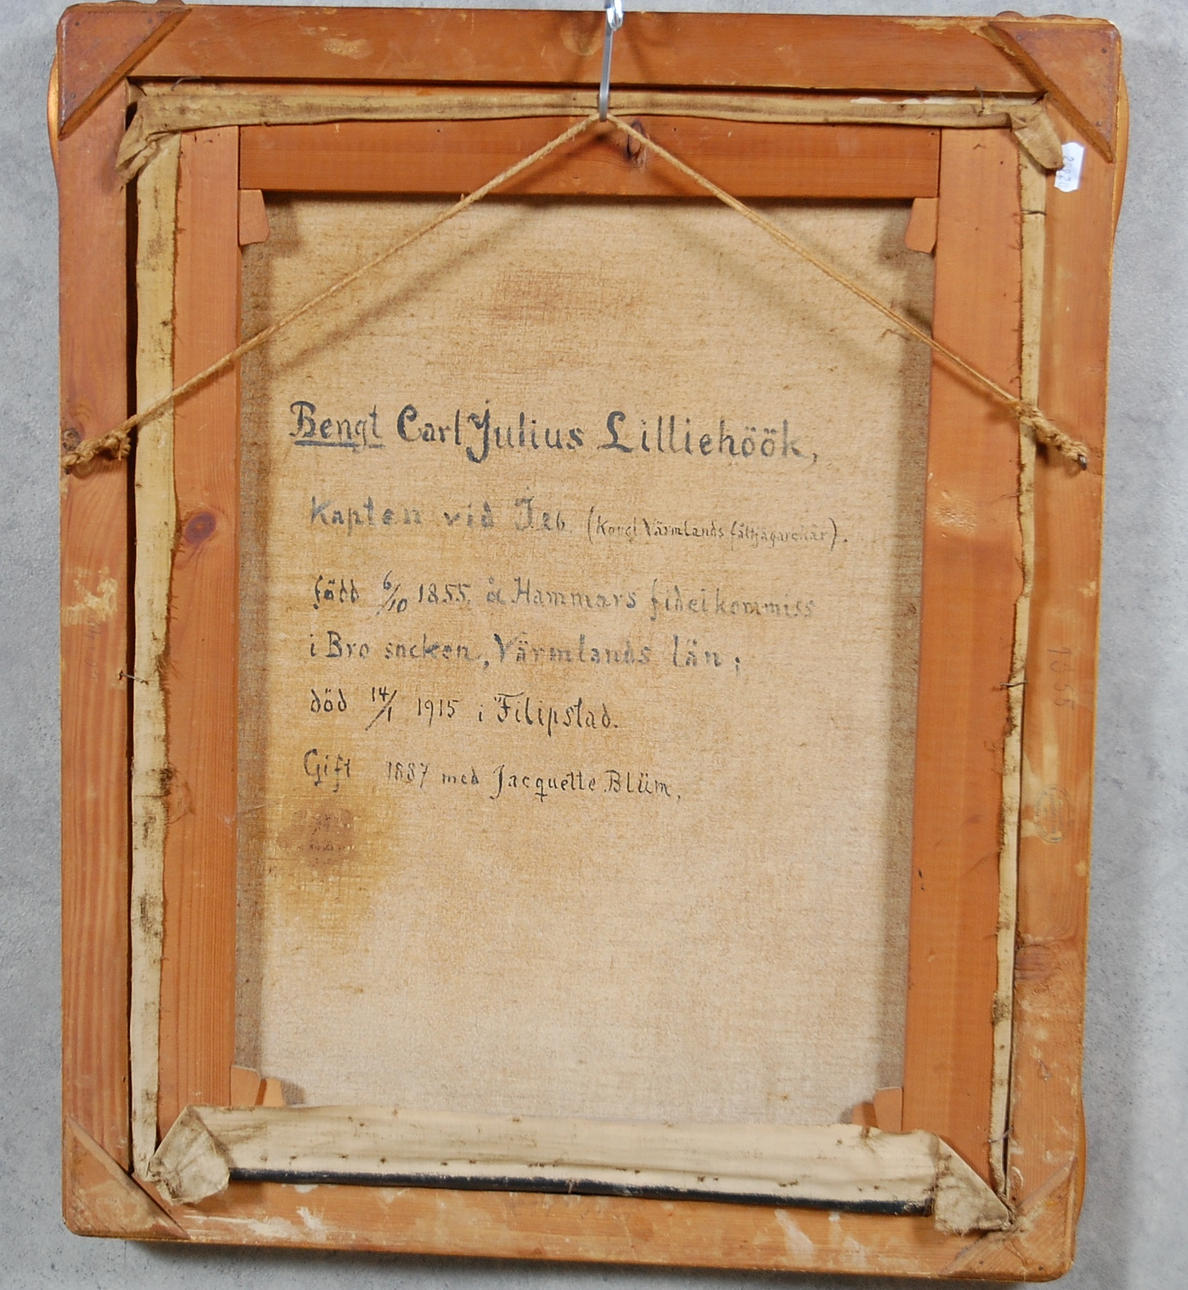 Bengt Carl Julius Lilliehöök,
Kapten vid (Kongl Värmlands fältjägarekår).
född 6/10 1855, å Hammars fideikommiss
i Bro socken, Värmlands län;
död 14/1 1915 i Filipstad.
Gift 1887 med Jacquette Blüm,